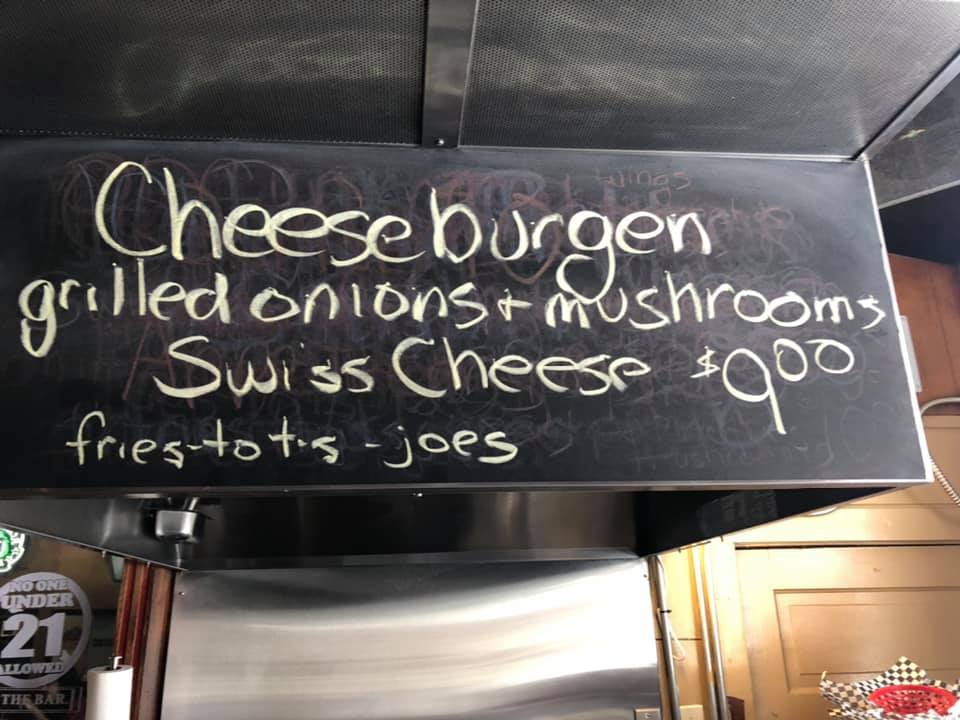 wings
Cheeseburgen
grilled onions + mushrooms
Swiss Cheese $9.00
fries-tots-joes
NO ONE
UNDER
21
ALLOWED
THE BAR.